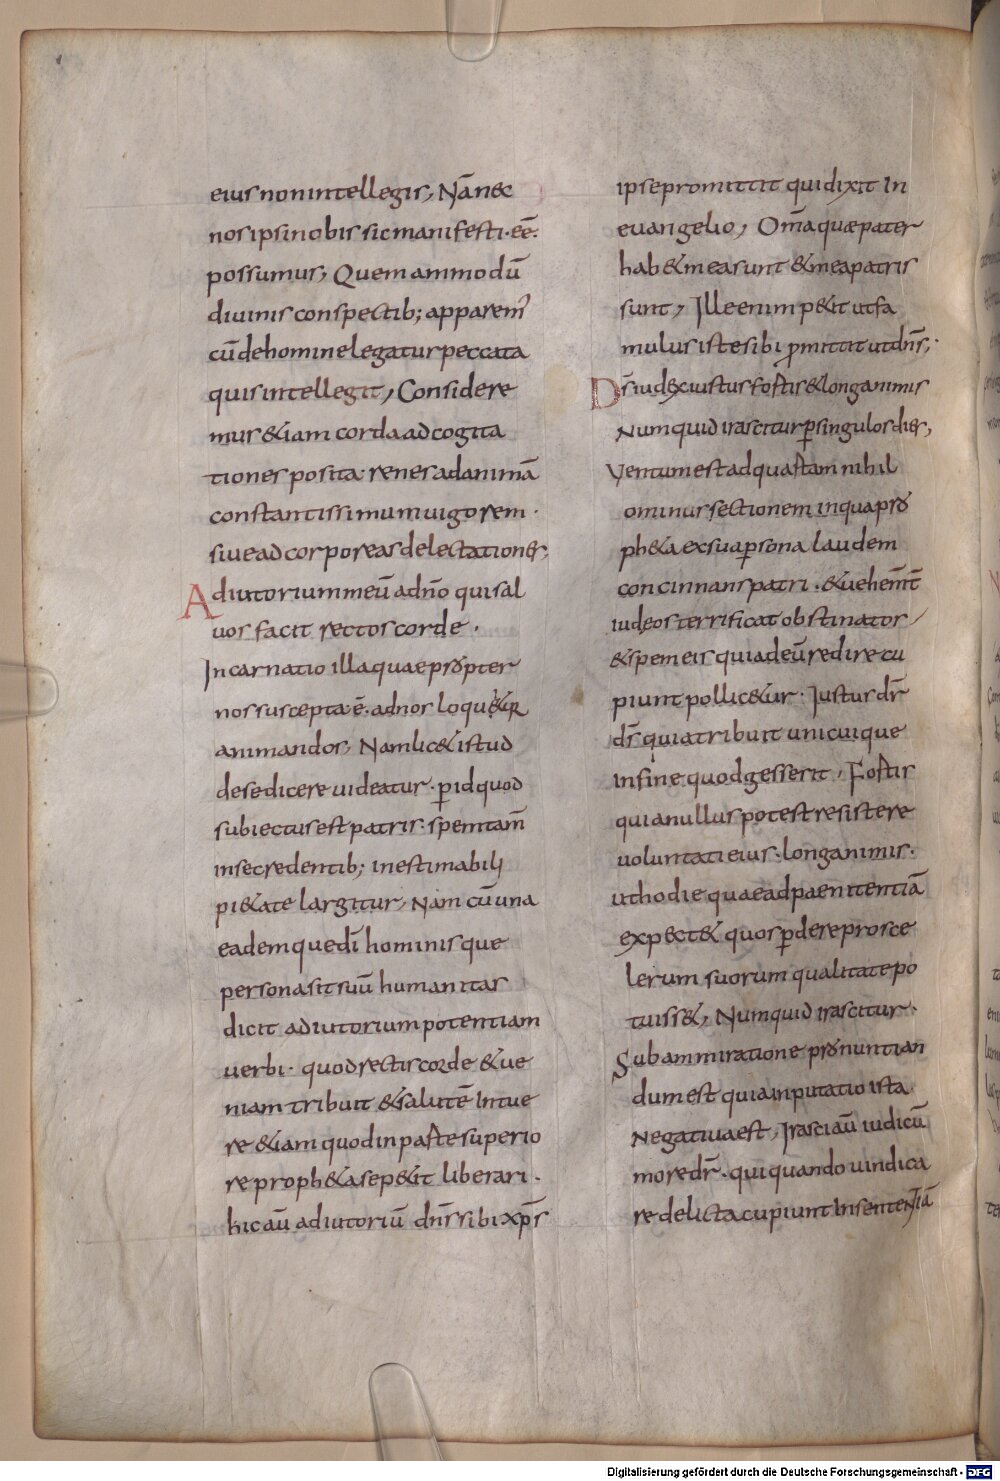 eius non intellegis, Nā nec
nos ipsi nobis sic manifesti · eē·
possumus, Quem ammodū
diuinis conspectib; apparem᾽
cū de homine legatur peccata
quis intellegit, Considere
mus &iam corda ad cogita
tiones posita· renes ad animā
constantissimum uigorem ·
siue ad corporeas delectationes,
Adiutorium meū a dn̄o qui sal
uos facit rectos corde ·
Incarnatio illa quae propter
nos suscepta ē· ad nos loqu&ur
animandos, Nam lic& istud
de se dicere uideatur · ꝑ id quod
subiectus est patris· spem tam̄
in se credentib; inestimabili
pi&ate largitur, Nam cū una
eademque dī hominisque
persona sit suū humanitas
dicit adiutorium potentiam
uerbi · quod rectis corde &ue
niam tribuit &salutē Intue
re &iam quod in parte superio
re proph&a se p&it liberari ·
hic aū adiutoriū dn̄s sibi xp̄s
ipse promittit qui dixit In
euangelio, Om̄a quae pater
hab& mea sunt & mea patris
sunt, Ille enim p&it ut fa
mulus iste sibi ꝓmittit ut dn̄s,·
Ds̄ iudex iustus fortis &longanimis
Numquid irascitur ꝑ singulos dies,
Ventum est ad quartam nihil
ominus sectionem in qua pro
ph&a ex sua ꝑsona laudem
concinnans patri · &uehem̄t̄
iudeos terrificat obstinatos,
&spem eis qui a deū redire cu
piunt pollic&ur · Iustus ds̄
ds̄ quia tribuit unicuique
in fine quod gesserit, Fortis
quia nullus potest resistere
uoluntati eius · longanimis·
ut hodie quae ad paenitentiā
expect& quos ꝑdere pro sce
lerum suorum qualitate po
tuiss&, Numquid irascitur ·
Sub ammiratione pronuntian
dum est quia inputatio ista·
Negatiua est, Irasci aū iudicū
more ds̄ · qui quando uindica
re delicta cupiunt In sententiā
Digitalisierung gefördert durch die Deutsche Forschungsgemeinschaft - DFG